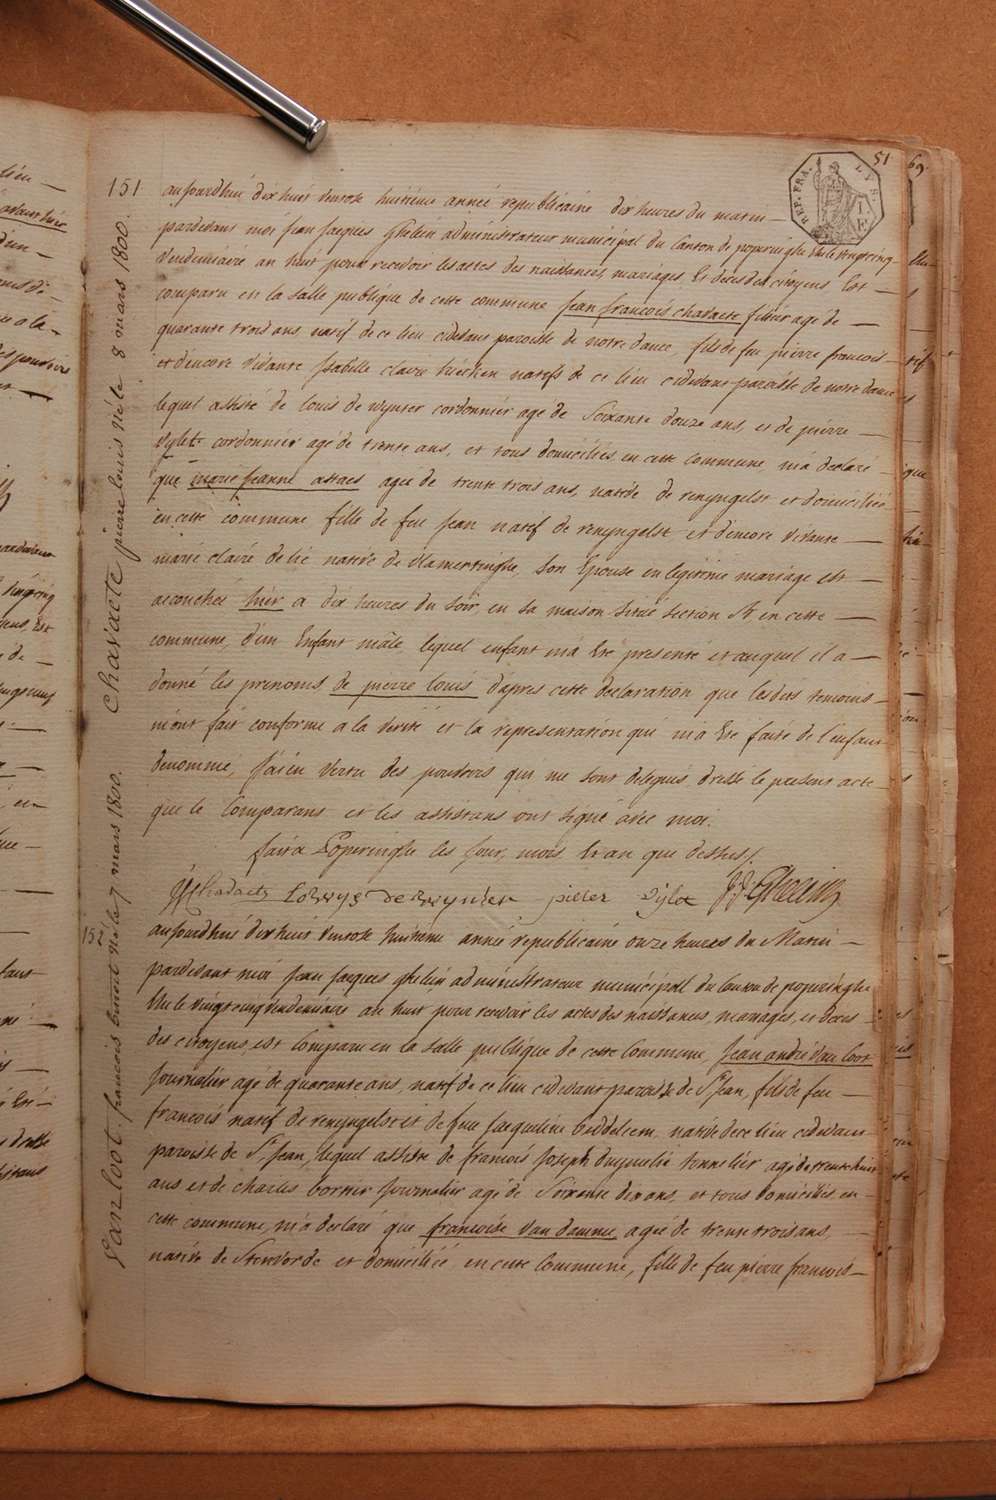 51
69
REP. FRA.
151
Chavaete pierre louis né le 8 mars 1800.
aujourdhuí dix huit ventose huitieme année republicaine dix heures du matin
pardevant moi jean jacques Ghelein administrateur municipal du Canton de poperinghe Elu le vingt cinq
Vendemiaire an huit pour recevoir les actes des naissances, mariages Et deces des citoyens Est
comparu en la salle publique de cette commune jean francois chavaete fileur agé de
quarante trois ans natif de ce lieu cidevant paroisse de notre dame, fils de feu pierre francois
et d'encore vivante isabelle claire natifs de ce lieu cidevant paroisse de notre dame
lequel assisté de louis de wynter cordonnier agé de Soixante douze ans, et de pierre
vylet cordonnier agé de trente ans, et tous domiciliés en cette commune m'a declaré
que marie jeanne astaes agée de trente trois ans, native de renyngelst et domiciliée
en cette commune fille de feu jean natif de renyngelst et d'encore vivante
marie claire de lié native de vlamertinghe, son Epouse en legitime mariage est
accouchée hier a dix heures du soir en sa maison située section A en cette
commune, d'un Enfant mâle, lequel enfant m'a Eté presenté et auquel il a
donné les prenoms de pierre louis d'apres cette declaration que lesdits temoins
m'ont fait conforme a la verité et la representation qui m'a Eté faite de l'enfant
denommé, j'ai en vertu des pouvoirs qui me sont delegués dressé le present acte
que le Comparant et les assistans ont signé avec moi.
fait a Poperinghe les jour, mois, Et an que dessus /.
Chavaete Lowys de wynter pieter vylet J. J. Ghelein
152
Van loot. francois benoit né le 7 mars 1800.
aujourdhuí dix huit ventose huitieme année republicaine onze heures du Matin
pardevant moi jean jacques ghelein administrateur municipal du Canton de poperinghe
Elu le vingt cinq Vendemiaire an huit pour recevoir les actes des naissances, mariages, et deces
des citoyens, est Comparu en la salle publique de cette Commune, jean andré Van loot
journalier agé de quarante ans, natif de ce lieu cidevant paroisse de St. jean, fils de feu
francois natif de renyngelst et de feue jacqueline native de ce lieu cidevant
paroisse de St. jean, lequel assisté de francois joseph tonnelier agé de trente huit
ans et de charles bornier journalier agé de Soixante dix ans, et tous domiciliés en
cette commune, m'a declaré que francoise Van damme agée de trente trois ans,
native de Stenvorde et domiciliée en cette Commune, fille de feu pierre francois